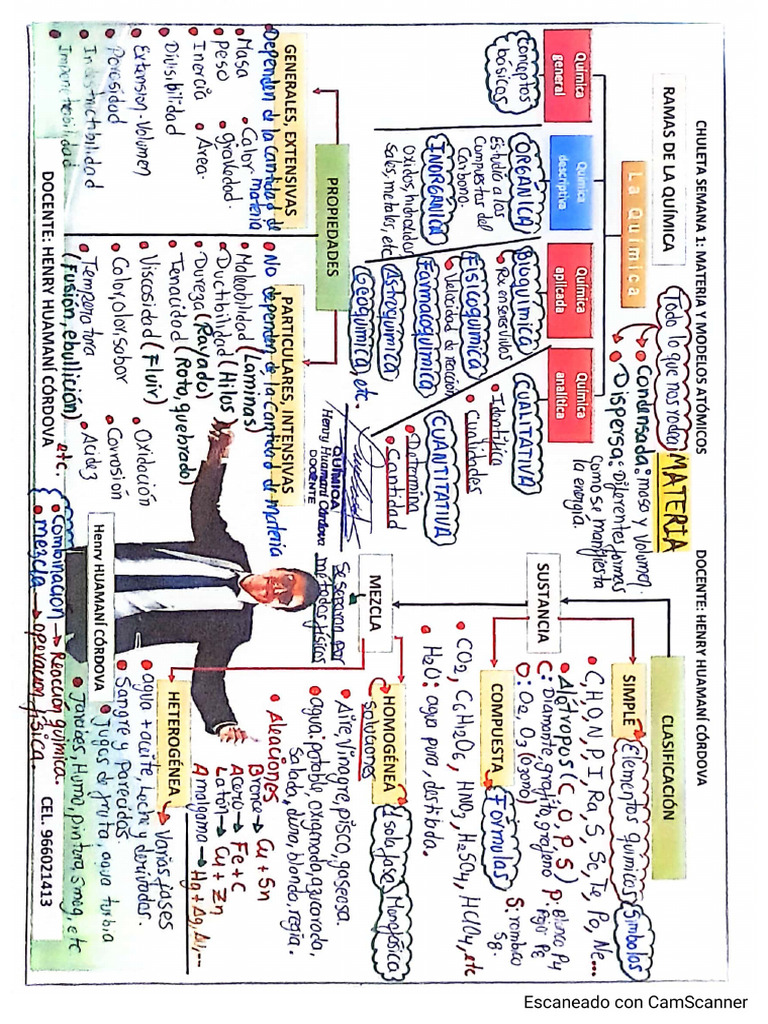 CHULETA SEMANA 1: MATERIA Y MODELOS ATÓMICOS
DOCENTE: HENRY HUAMANÍ CÓRDOVA
RAMAS DE LA QUÍMICA
La Química
Química general
Conceptos básicos
Química descriptiva
ORGÁNICA
Estudio a los
Compuestos del
Carbono.
INORGÁNICA
Oxidos, hidroxidos
Sales, metales, etc
Química aplicada
Bioquímica
Rx en seres vivos
Fisicoquímica
Velocidad de reacción
Farmaloquímica
Astroquímica
Geoquímica, etc.
Química analítica
CUALITATIVA
Identifica
Cualidades
CUANTITATIVA
Determina
Cantidad
MATERIA
Todo lo que nos rodea
Condensada: masa y Volumen.
Dispersa: Diferentes formas
Como se manifiesta
la energía.
PROPIEDADES
GENERALES, EXTENSIVAS
Dependen de la cantidad de materia
Masa
Calor
peso
gravedad.
Inercia
Área.
Divisibilidad
Extension-Volumen
Porosidad
Indestructibilidad
Impenetrabilidad
PARTICULARES, INTENSIVAS
No dependen de la Cantidad de materia
Maleabilidad (Laminas)
Ductibilidad (Hilos)
Dureza (Rayado)
Tenacidad (Roto, quebrado)
Viscosidad (Fluir)
Oxidación
Color, olor, sabor
Corrosión
Temperatura
Acidez
(Fusión, ebullición) etc.
QUÍMICA
Henry Huamaní Córdova
DOCENTE
CLASIFICACIÓN
SUSTANCIA
SIMPLE
Elementos químicos
Símbolos
C, H, O, N, P, I, Ra, S, Sc, Te, Po, Ne...
Alótropos (C, O, P, S)
C: Diamante, grafito, grafeno
P: Blanco P4
Rojo Pe
O: O2, O3 (ozono)
S: rombico
S8.
COMPUESTA
Fórmulas
CO2, C6H12O6, HNO3, H2SO4, HClO4, etc
H2O: agua pura, destilada.
MEZCLA
Se separan por
métodos físicos
HOMOGÉNEA
Soluciones
1 sola fase, Monofásica
Aire, Vinagre, pisco, gaseosa.
agua: potable, oxigenada, azucarada,
Salada, dura, blanda, regia.
Aleaciones
Bronce → Cu + Sn
Acero → Fe + C
Latón → Cu + Zn
Amalgama → Hg + Ag, Au, ...
HETEROGÉNEA
Varias fases
agua + aceite, leche y derivados.
Sangre y parecidos.
Jugos de fruta, agua turbia
Jarabes, Humo, pintura, Smog, etc
Henry HUAMANÍ CÓRDOVA
Combinación → Reacción química.
mezcla → operación física.
DOCENTE: HENRY HUAMANÍ CÓRDOVA
CEL. 966021413
Escaneado con CamScanner